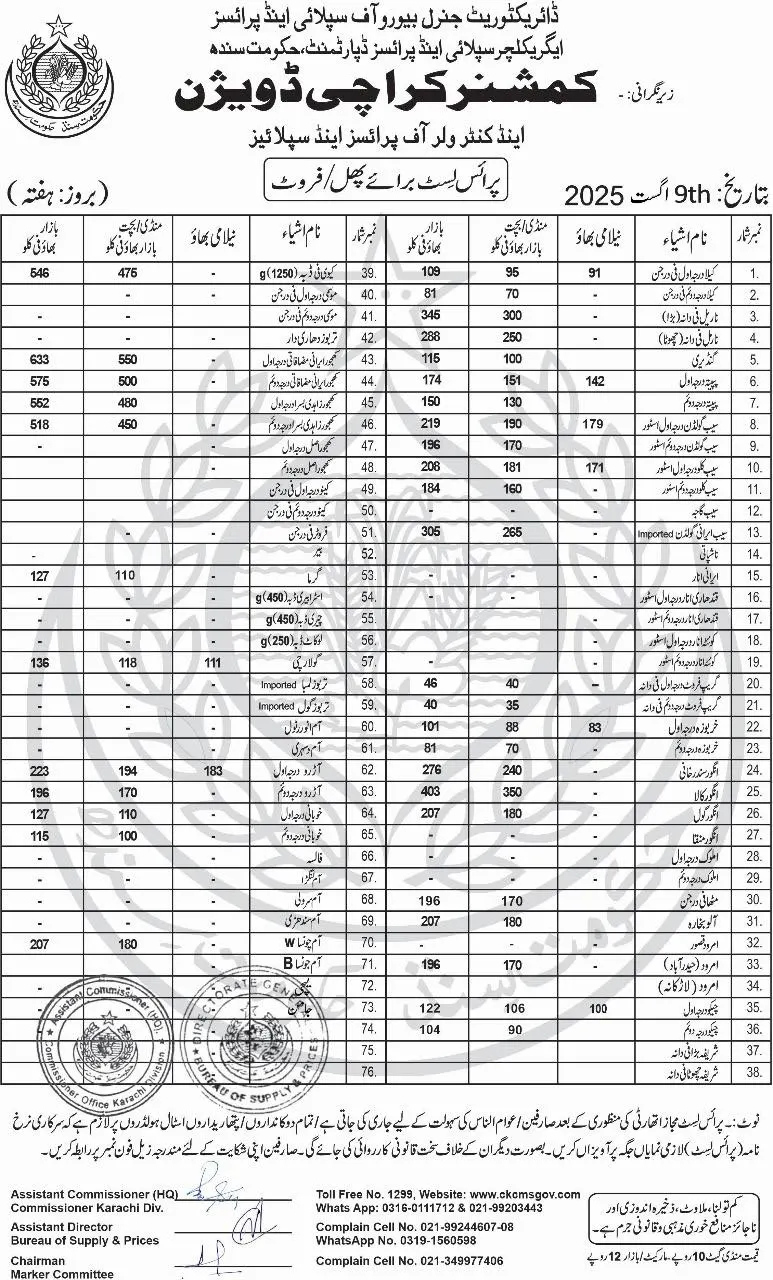 ڈائریکٹوریٹ جنرل بیورو آف سپلائی اینڈ پرائسز
ایگریکلچر سپلائی اینڈ پرائسز ڈپارٹمنٹ، حکومت سندھ
زیر نگرانی: -
کمشنر کراچی ڈویژن
اینڈ کنٹرولر آف پرائسز اینڈ سپلائیز
پرائس لسٹ برائے پھل/فروٹ
تاریخ: 9th اگست 2025
(بروز: ہفتہ)
نمبر شمار نام اشیاء نیلامی بھاؤ منڈی/بچت بازار بھاؤ فی کلو بازار بھاؤ فی کلو
1. کیلا درجہ اول فی درجن 91 95 109
2. کیلا درجہ دوئم فی درجن - 70 81
3. ناریل فی دانہ (بڑا) - 300 345
4. ناریل فی دانہ (چھوٹا) - 250 288
5. گنڈیری - 100 115
6. پپیتہ درجہ اول 142 151 174
7. پپیتہ درجہ دوئم - 130 150
8. سیب گولڈن درجہ اول اسٹور 179 190 219
9. سیب گولڈن درجہ دوئم اسٹور - 170 196
10. سیب کلو درجہ اول اسٹور 171 181 208
11. سیب کلو درجہ دوئم اسٹور - 160 184
12. سیب گاچہ - - -
13. سیب ایرانی گولڈن Imported - 265 305
14. ناشپاتی
15. ایرانی انار - - -
16. قندھاری انار درجہ اول اسٹور - - -
17. قندھاری انار درجہ دوئم اسٹور - - -
18. کوئٹہ انار درجہ اول اسٹور
19. کوئٹہ انار درجہ دوئم اسٹور - - -
20. گریپ فروٹ درجہ اول فی دانہ - 40 46
21. گریپ فروٹ درجہ دوئم فی دانہ - 35 40
22. خربوزہ درجہ اول 83 88 101
23. خربوزہ درجہ دوئم - 70 81
24. انگور سندرخانی - 240 276
25. انگور کالا - 350 403
26. انگور گول - 180 207
27. انگور منقا - - -
28. املوک درجہ اول - - -
29. املوک درجہ دوئم - - -
30. مٹھا فی درجن - 170 196
31. آلو بخارہ - 180 207
32. امرود قصور - - -
33. امرود (حیدرآباد) - 170 196
34. امرود (لاڑکانہ)
35. چیکو درجہ اول 100 106 122
36. چیکو درجہ دوئم - 90 104
37. شریفہ بڑا فی دانہ
38. شریفہ چھوٹا فی دانہ
نمبر شمار نام اشیاء نیلامی بھاؤ منڈی/بچت بازار بھاؤ فی کلو بازار بھاؤ فی کلو
39. کیوی فی ڈبہ (1250)g - 475 546
40. موسمی درجہ اول فی درجن - - -
41. موسمی درجہ دوئم فی درجن - - -
42. تربوز دھاری دار - - -
43. کھجور ایرانی مضافاتی درجہ اول - 550 633
44. کھجور ایرانی مضافاتی درجہ دوئم - 500 575
45. کھجور زاہدی بسرا درجہ اول - 480 552
46. کھجور زاہدی بسرا درجہ دوئم - 450 518
47. کھجور اصل درجہ اول - - -
48. کھجور اصل درجہ دوئم - - -
49. کینو درجہ اول فی درجن
50. کینو درجہ دوئم فی درجن
51. فروٹر فی درجن - - -
52. بیر -
53. گرما - 110 127
54. اسٹرابیری ڈبہ (450)g - - -
55. چیری ڈبہ (450)g
56. لوکاٹ ڈبہ (250)g
57. گولارچی 111 118 136
58. تربوز لمبا Imported - - -
59. تربوز گول Imported - - -
60. آم انور رٹول - - -
61. آم دسہری - - -
62. آڑو درجہ اول 183 194 223
63. آڑو درجہ دوئم - 170 196
64. خوبانی درجہ اول - 110 127
65. خوبانی درجہ دوئم - 100 115
66. فالسہ - - -
67. آم لنگڑا - - -
68. آم سرولی - - -
69. آم سندھڑی - - -
70. آم چونسا W - 180 207
71. آم چونسا B - - -
72. لیچی
73. جامن - - -
74.
75.
76.
Assistant Commissioner (HQ).
Commissioner Office Karachi Division
DIRECTORATE GENERAL
BUREAU OF SUPPLY & PRICES
نوٹ:- پرائس لسٹ مجاز اتھارٹی کی منظوری کے بعد صارفین/عوام الناس کی سہولت کے لیے جاری کی جاتی ہے/تمام دوکانداروں/پتھاریداروں اسٹال ہولڈروں پر لازم ہے کہ سرکاری نرخ
نامہ (پرائس لسٹ) لازمی نمایاں جگہ پر آویزاں کریں۔ بصورت دیگر ان کے خلاف سخت قانونی کارروائی کی جائے گی۔ صارفین اپنی شکایت کے لئے مندرجہ زیل فون نمبر پر رابطہ کریں۔
Assistant Commissioner (HQ)
Commissioner Karachi Div.
Assistant Director
Bureau of Supply & Prices
Chairman
Marker Committee
Toll Free No. 1299, Website: www.ckcmsgov.com
Whats App: 0316-0111712 & 021-99203443
Complain Cell No. 021-99244607-08
WhatsApp No. 0319-1560598
Complain Cell No. 021-349977406
کم تولنا، ملاوٹ، ذخیرہ اندوزی اور
ناجائز منافع خوری مذہبی و قانونی جرم ہے۔
قیمت منڈی گیٹ 10 روپے، مارکیٹ/بازار 12 روپے